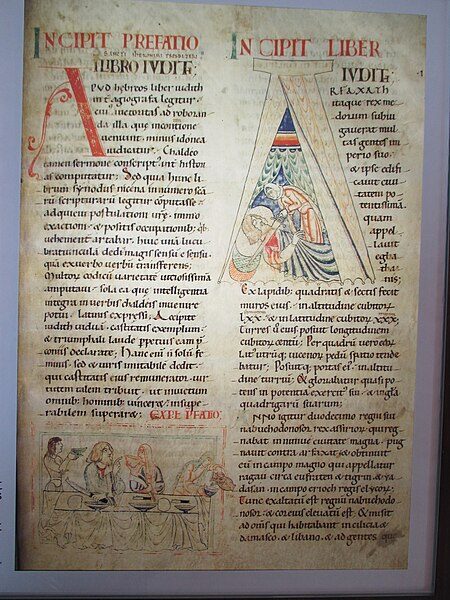 INCIPIT PREFATIO
ILIBRO IVDIT:
APVD hebreos liber iudith
int agiografa legitur.
cui auctoritas ad roboran
da illa que
ueniunt. minus idonea
iudicatur. Chaldeo
tamen sermone conscript int histor
as computatur. Sed quia hunc li
brum synodus nicena in numero sca
rū scripturarū legitur cōputasse.
adquieui postulationi ure. immo
exactioni. & positis occupationib; q̄b
uehement artabar. huic unā lucu
bratiunculā dedi. magis sensū e sensu.
quā ex uerbo verbū transferens.
Multor codicū uarietatē uiciosissimā
amputaui. sola ea que intelligentia
integra in uerbis chaldeis inuenire
potui. latinis expressi. Accipite
iudith uiduā. castitatis exemplum.
& triumphali laude ppetuis eam p
coniis declarate. Hanc enī n solū fe
minis. sed & uiris imitabilē dedit.
qui castitatis eius remunerator. uir
tutem talem tribuit. ut inuictum
omnib; hominib; uinceret. insupe
rabilem superaret. EXPL PFATO.
INCIPIT LIBER
IVDIT:
ARFAXATH
itaque rex me
dorum subiu
gauerat mul
tas gentes im
perio suo.
& ipse edifi
cauit ciui
tatem po
tentissimā
quam
appel
lauit
egba
tha
nis;
Ex lapidib; quadratis & sectis fecit
muros eius. in altitudine cubitor
LXX. & in latitudine cubitor XXX;
Turres ū eius posuit longitudinem
cubitor centū; Per quadrū uero eor
lat utrūq; uicenor pedū spatio tende
batur; Posuitq; portas ei in altitu
dine turriū; & gloriabatur quasi po
tens in potentia exercit sui. & in gla
quadrigarū suarum:
ANNO igitur duodecimo regni sui
nabuchodonosor rex assirior. qui reg
nabat in niniue ciuitate magna. pug
nauit contra arfaxat. & obtinuit
eū in campo magno qui appellatur
ragau circa eufraten & tigrin & ya
dasan. in campo erioch regis elycor;
Tunc exaltatū est regnū nabuchodo
nosor. & cor eius eleuatū est. & misit
ad omīs qui habitabant in cilicia &
damasco. & libano. & ad gentes que